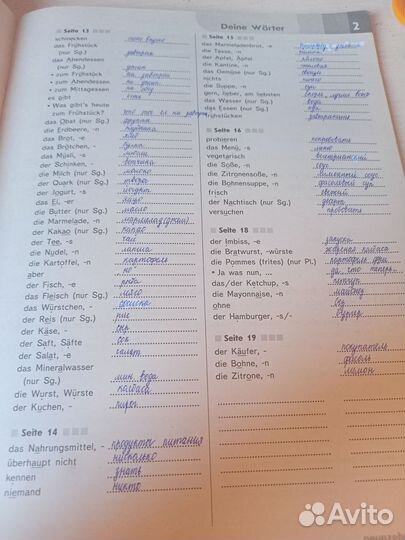 Deine Wörter 2
Seite 13
schmecken
das Frühstück
(nur Sg.) завтрак
das Abendessen
(nur Sg.) ужин
• zum Frühstück на завтрак
• zum Abendessen на ужин
• zum Mittagessen на обед
es gibt есть
• Was gibt's heute
zum Frühstück?
das Obst (nur Sg.) фрукты
die Erdbeere, -n клубника
das Brot, -e хлеб
das Brötchen, - булка
das Müsli, -s мюсли
der Schinken, - ветчина
die Milch (nur Sg.) молоко
der Quark (nur Sg.) творог
der Jogurt, -s йогурт
das Ei, -er яйцо
die Butter (nur Sg.) масло
die Marmelade, -n мармелад (джем)
der Kakao (nur Sg.) какао
der Tee, -s чай
die Nudel, -n лапша
die Kartoffel, -n картофель
aber но
der Fisch, -e рыба
das Fleisch (nur Sg.) мясо
das Würstchen, - сосиска
der Reis (nur Sg.) рис
der Käse, - сыр
der Saft, Säfte сок
der Salat, -e салат
das Mineralwasser
(nur Sg.) мин. вода
die Wurst, Würste колбаса
der Kuchen, - пирог
Seite 14
das Nahrungsmittel, - продукты питания
überhaupt nicht нисколько
kennen знать
niemand никто
Seite 15
das Marmeladenbrot, -e
die Tasse, -n чашка
der Apfel, Äpfel яблоко
die Kantine, -n столовая
das Gemüse (nur Sg.) овощи
nichts ничего
die Suppe, -n суп
gern, lieber, am liebsten
das Wasser (nur Sg.) вода
das Essen (nur Sg.) еда
frühstücken завтракать
Seite 16
probieren попробовать
das Menü, -s меню
vegetarisch вегетарианский
die Soße, -n соус
die Zitronensoße, -n лимонный соус
die Bohnensuppe, -n фасолевый суп
frisch свежий
der Nachtisch (nur Sg.) десерт
versuchen пробовать
Seite 18
der Imbiss, -e закуска
die Bratwurst, -würste жареная колбаса
die Pommes (frites) (nur Pl.) картофель фри
• Ja was nun, ... да, что теперь...
das/der Ketchup, -s кетчуп
die Mayonnaise, -n майонез
ohne без
der Hamburger, -s/- бургер
Seite 19
der Käufer, - покупатель
die Bohne, -n фасоль
die Zitrone, -n лимон
Avito